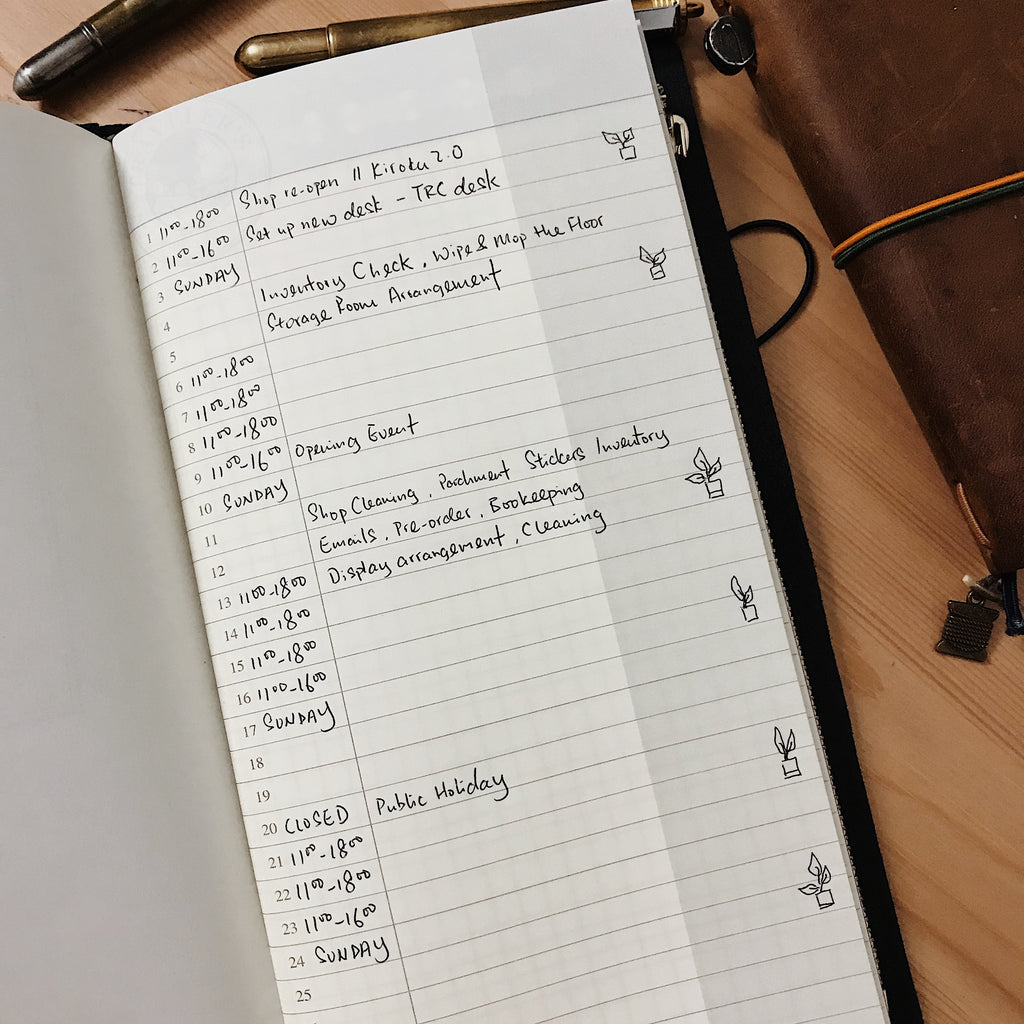 1 11⁰⁰-18⁰⁰ Shop re-open // Kiroku 2.0
2 11⁰⁰-16⁰⁰ Set up new desk - TRC desk
3 SUNDAY
4 Inventory Check, Wipe & Mop the Floor
5 Storage Room Arrangement
6 11⁰⁰-18⁰⁰
7 11⁰⁰-18⁰⁰
8 11⁰⁰-18⁰⁰
9 11⁰⁰-16⁰⁰ Opening Event
10 SUNDAY
11 Shop Cleaning, Parchment Stickers Inventory
12 Emails, Pre-order, Bookkeeping
13 11⁰⁰-18⁰⁰ Display arrangement, Cleaning
14 11⁰⁰-18⁰⁰
15 11⁰⁰-18⁰⁰
16 11⁰⁰-16⁰⁰
17 SUNDAY
18
19
20 CLOSED Public Holiday
21 11⁰⁰-18⁰⁰
22 11⁰⁰-18⁰⁰
23 11⁰⁰-16⁰⁰
24 SUNDAY
25